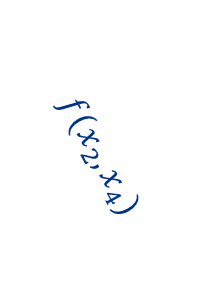 f(x₂, x₄)